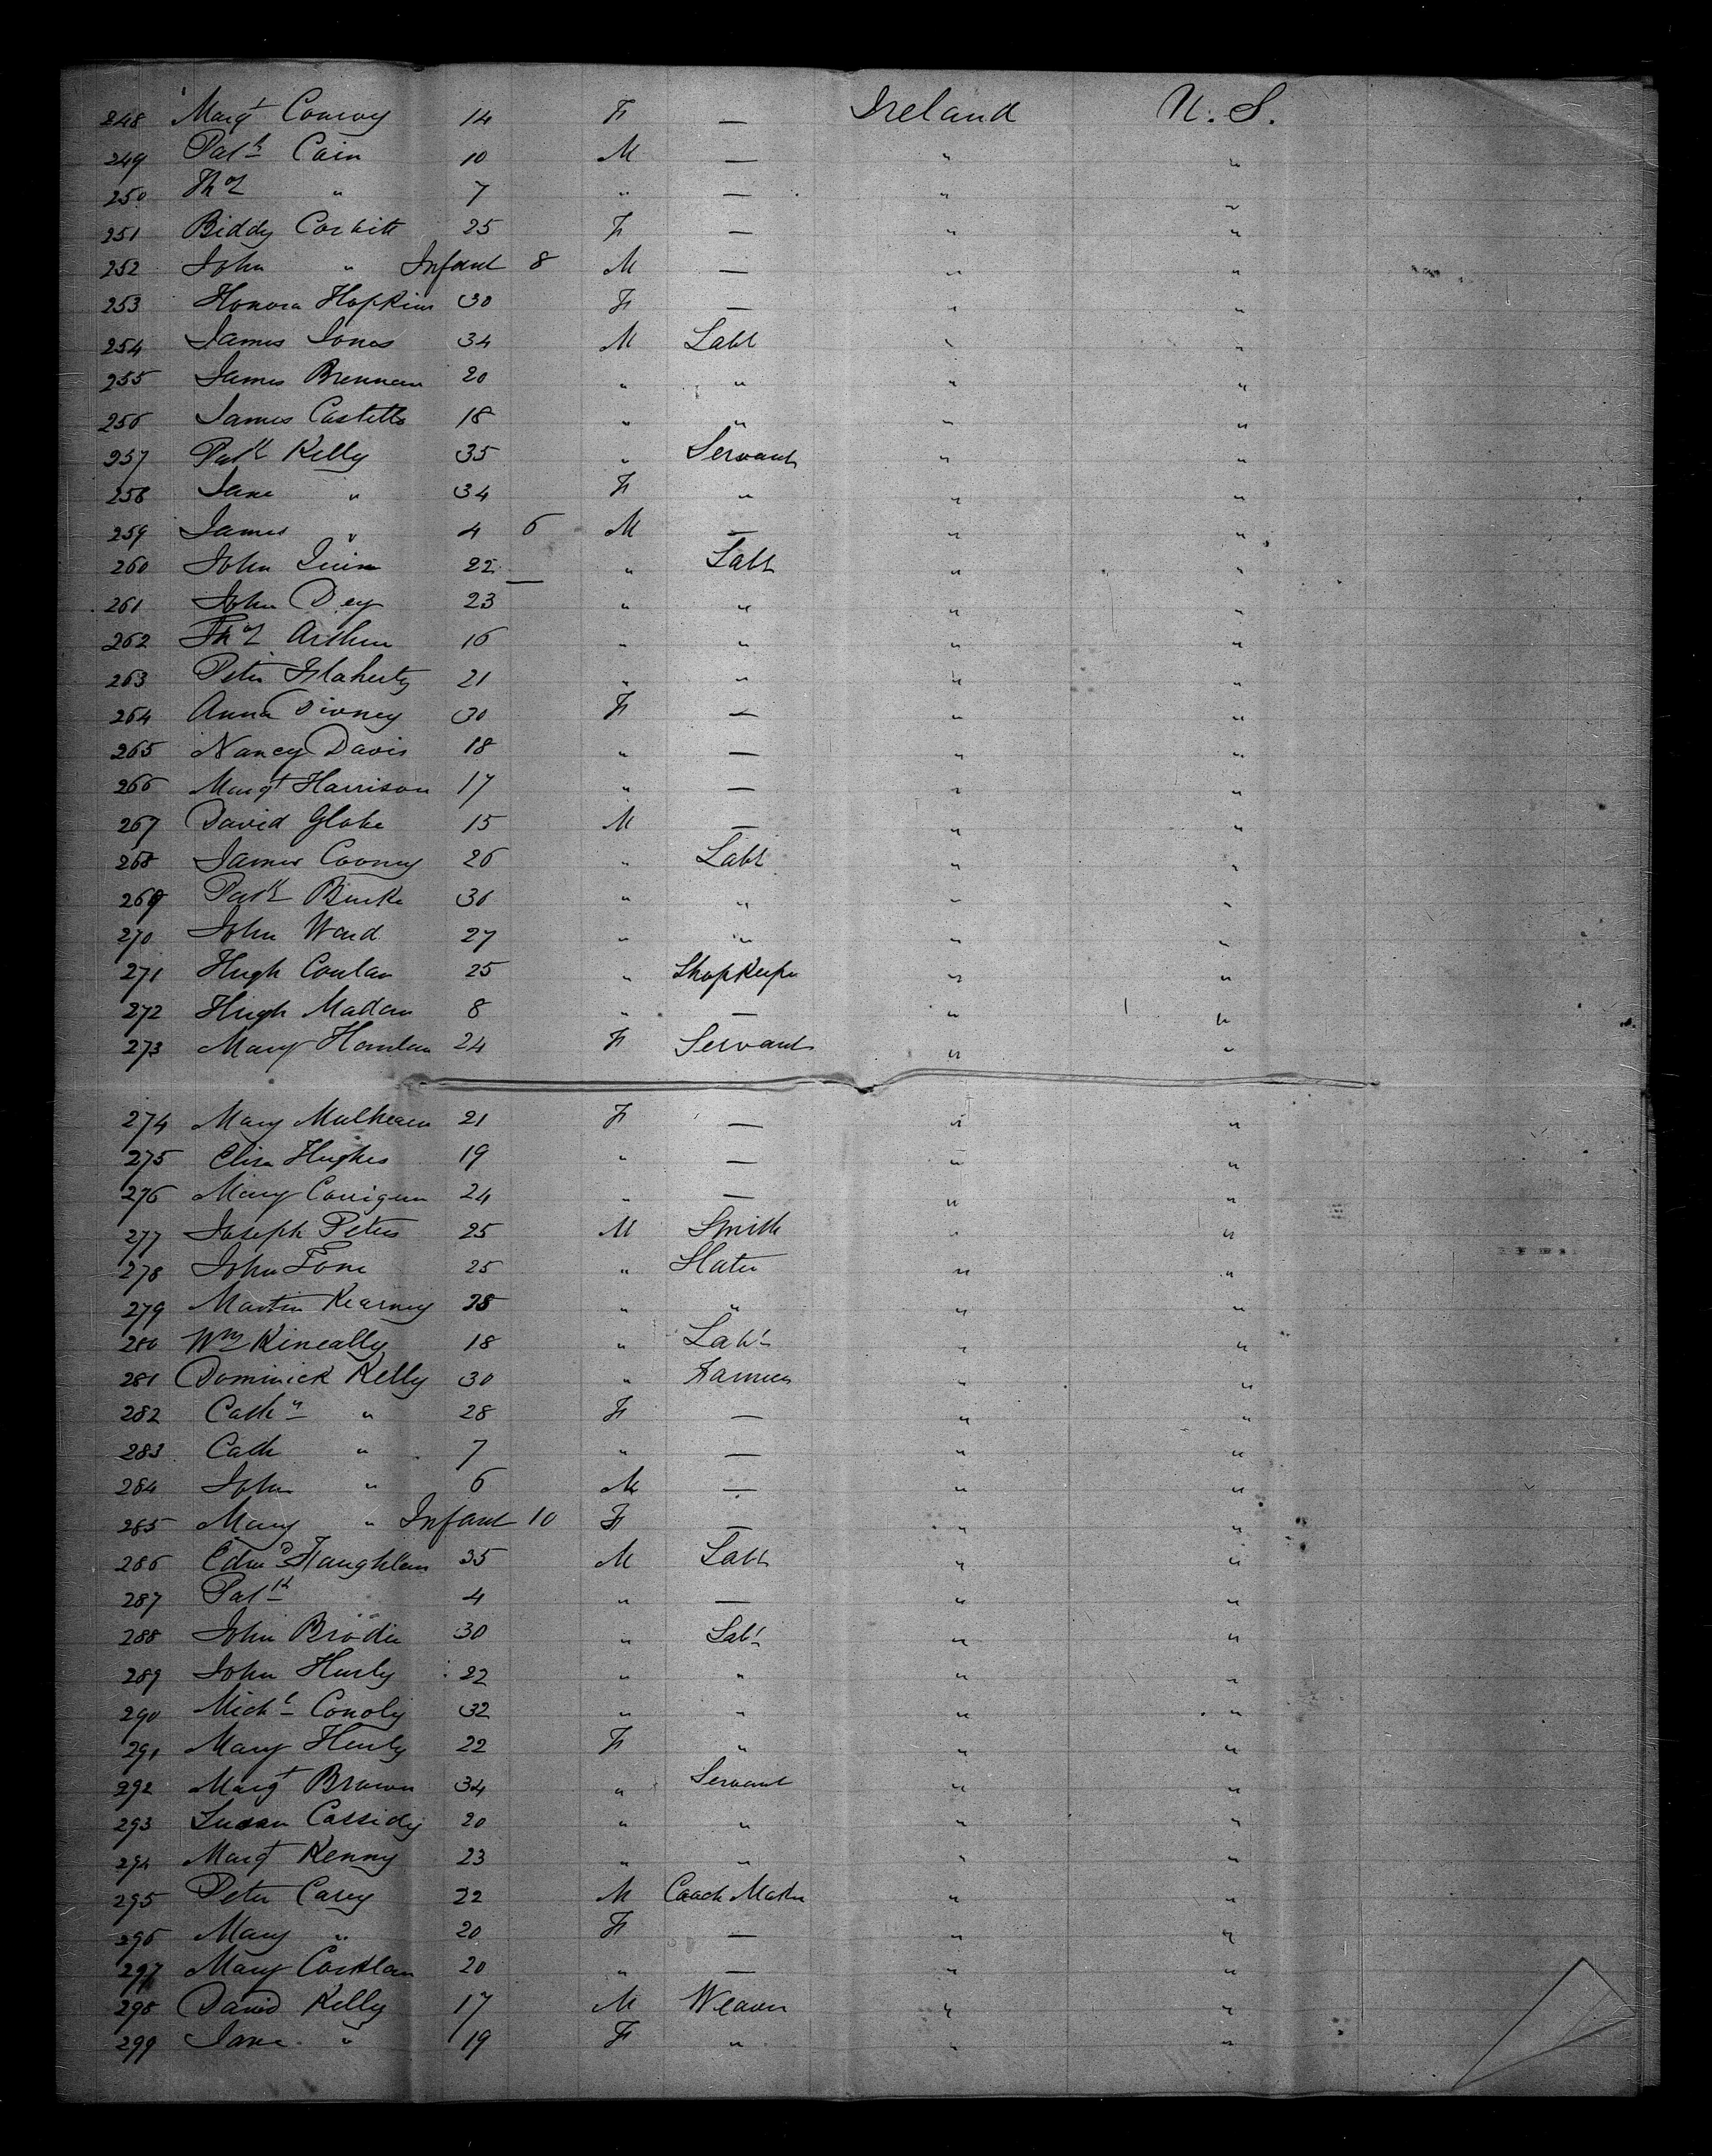 248 Margt Conroy 14 F — Ireland U. S.
249 Patk Cain 10 M — " "
250 Thos " 7 " — " "
251 Biddy Corbitt 25 F — " "
252 John " Infant 8 M — " "
253 Honora Hopkins 30 F — " "
254 James Jones 34 M Labr " "
255 James Brennan 20 " " " "
256 James Castello 18 " " " "
257 Patk Kelly 35 " Servant " "
258 Jane " 34 F " " "
259 James " 4 6 M — " "
260 John Quinn 22 — " Labr " "
261 John Dey 23 " " " "
262 Thos Arthur 16 " " " "
263 Peter Flaherty 21 " " " "
264 Anna Divney 30 F — " "
265 Nancy Davis 18 " — " "
266 Margt Harrison 17 " — " "
267 David 15 M — " "
268 James Cooney 26 " Labr " "
269 Patk Burke 36 " " " "
270 John Ward 27 " " " "
271 Hugh Conlan 25 " Shopkeeper " "
272 Hugh Madan 8 " — " "
273 Mary 24 F Servant " "
274 Mary Mulhearn 21 F — " "
275 Eliza Hughes 19 " — " "
276 Mary Corrigan 24 " — " "
277 Joseph Peters 25 M Smith " "
278 John 25 " Slater " "
279 Martin Kearney 28 " " " "
280 Wm Kineally 18 " Labr " "
281 Dominick Kelly 30 " Farmer " "
282 Cathn " 28 F — " "
283 Cath " 7 " — " "
284 John " 6 M — " "
285 Mary " Infant 10 F — " "
286 Edmd 35 M Labr " "
287 Patk 4 " — " "
288 John Brodie 30 " Labr " "
289 John Hurly 22 " " " "
290 Michl Conoly 32 " " " "
291 Mary Hurly 22 F " " "
292 Margt Brown 34 " Servant " "
293 Susan Cassidy 20 " " " "
294 Margt Kenny 23 " " " "
295 Peter Carey 22 M Coach Maker " "
296 Mary " 20 F — " "
297 Mary 20 " — " "
298 David Kelly 17 M Weaver " "
299 Jane " 19 F " " "